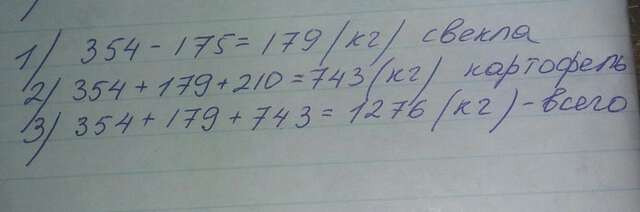 1) 354 - 175 = 179 (кг) свекла
2) 354 + 179 + 210 = 743 (кг) картофель
3) 354 + 179 + 743 = 1276 (кг) - всего